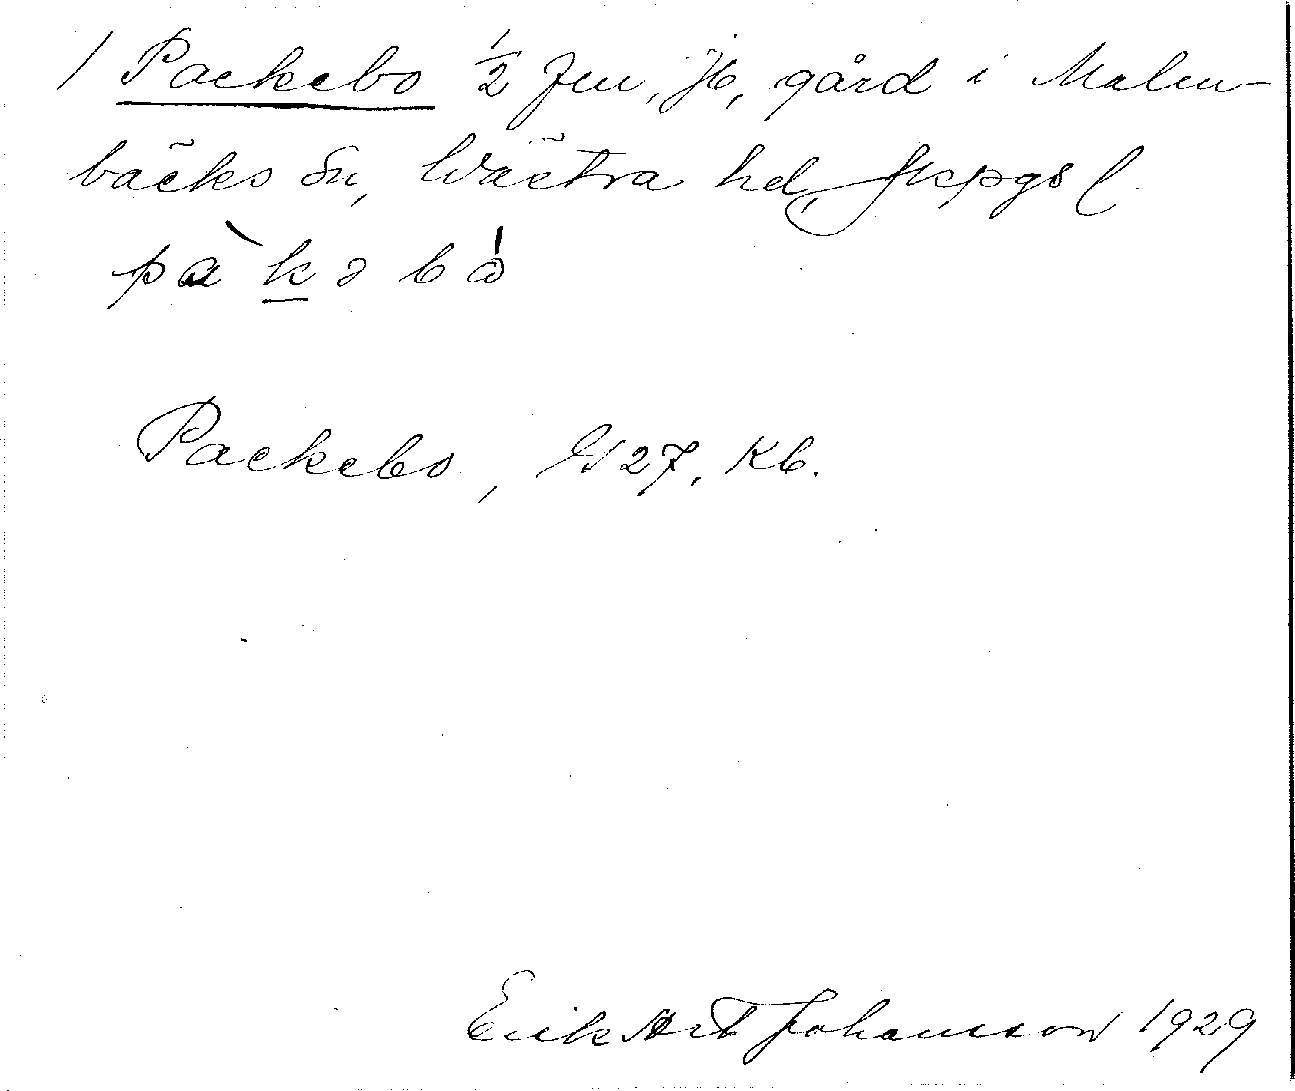 / Packebo ½ fm, jb, gård i Malm-
bäcks sn, Västra hd, Jkpgs l.
pàkəbó
Packebo, 1727, Kb.
Erik Art Johansson 1929